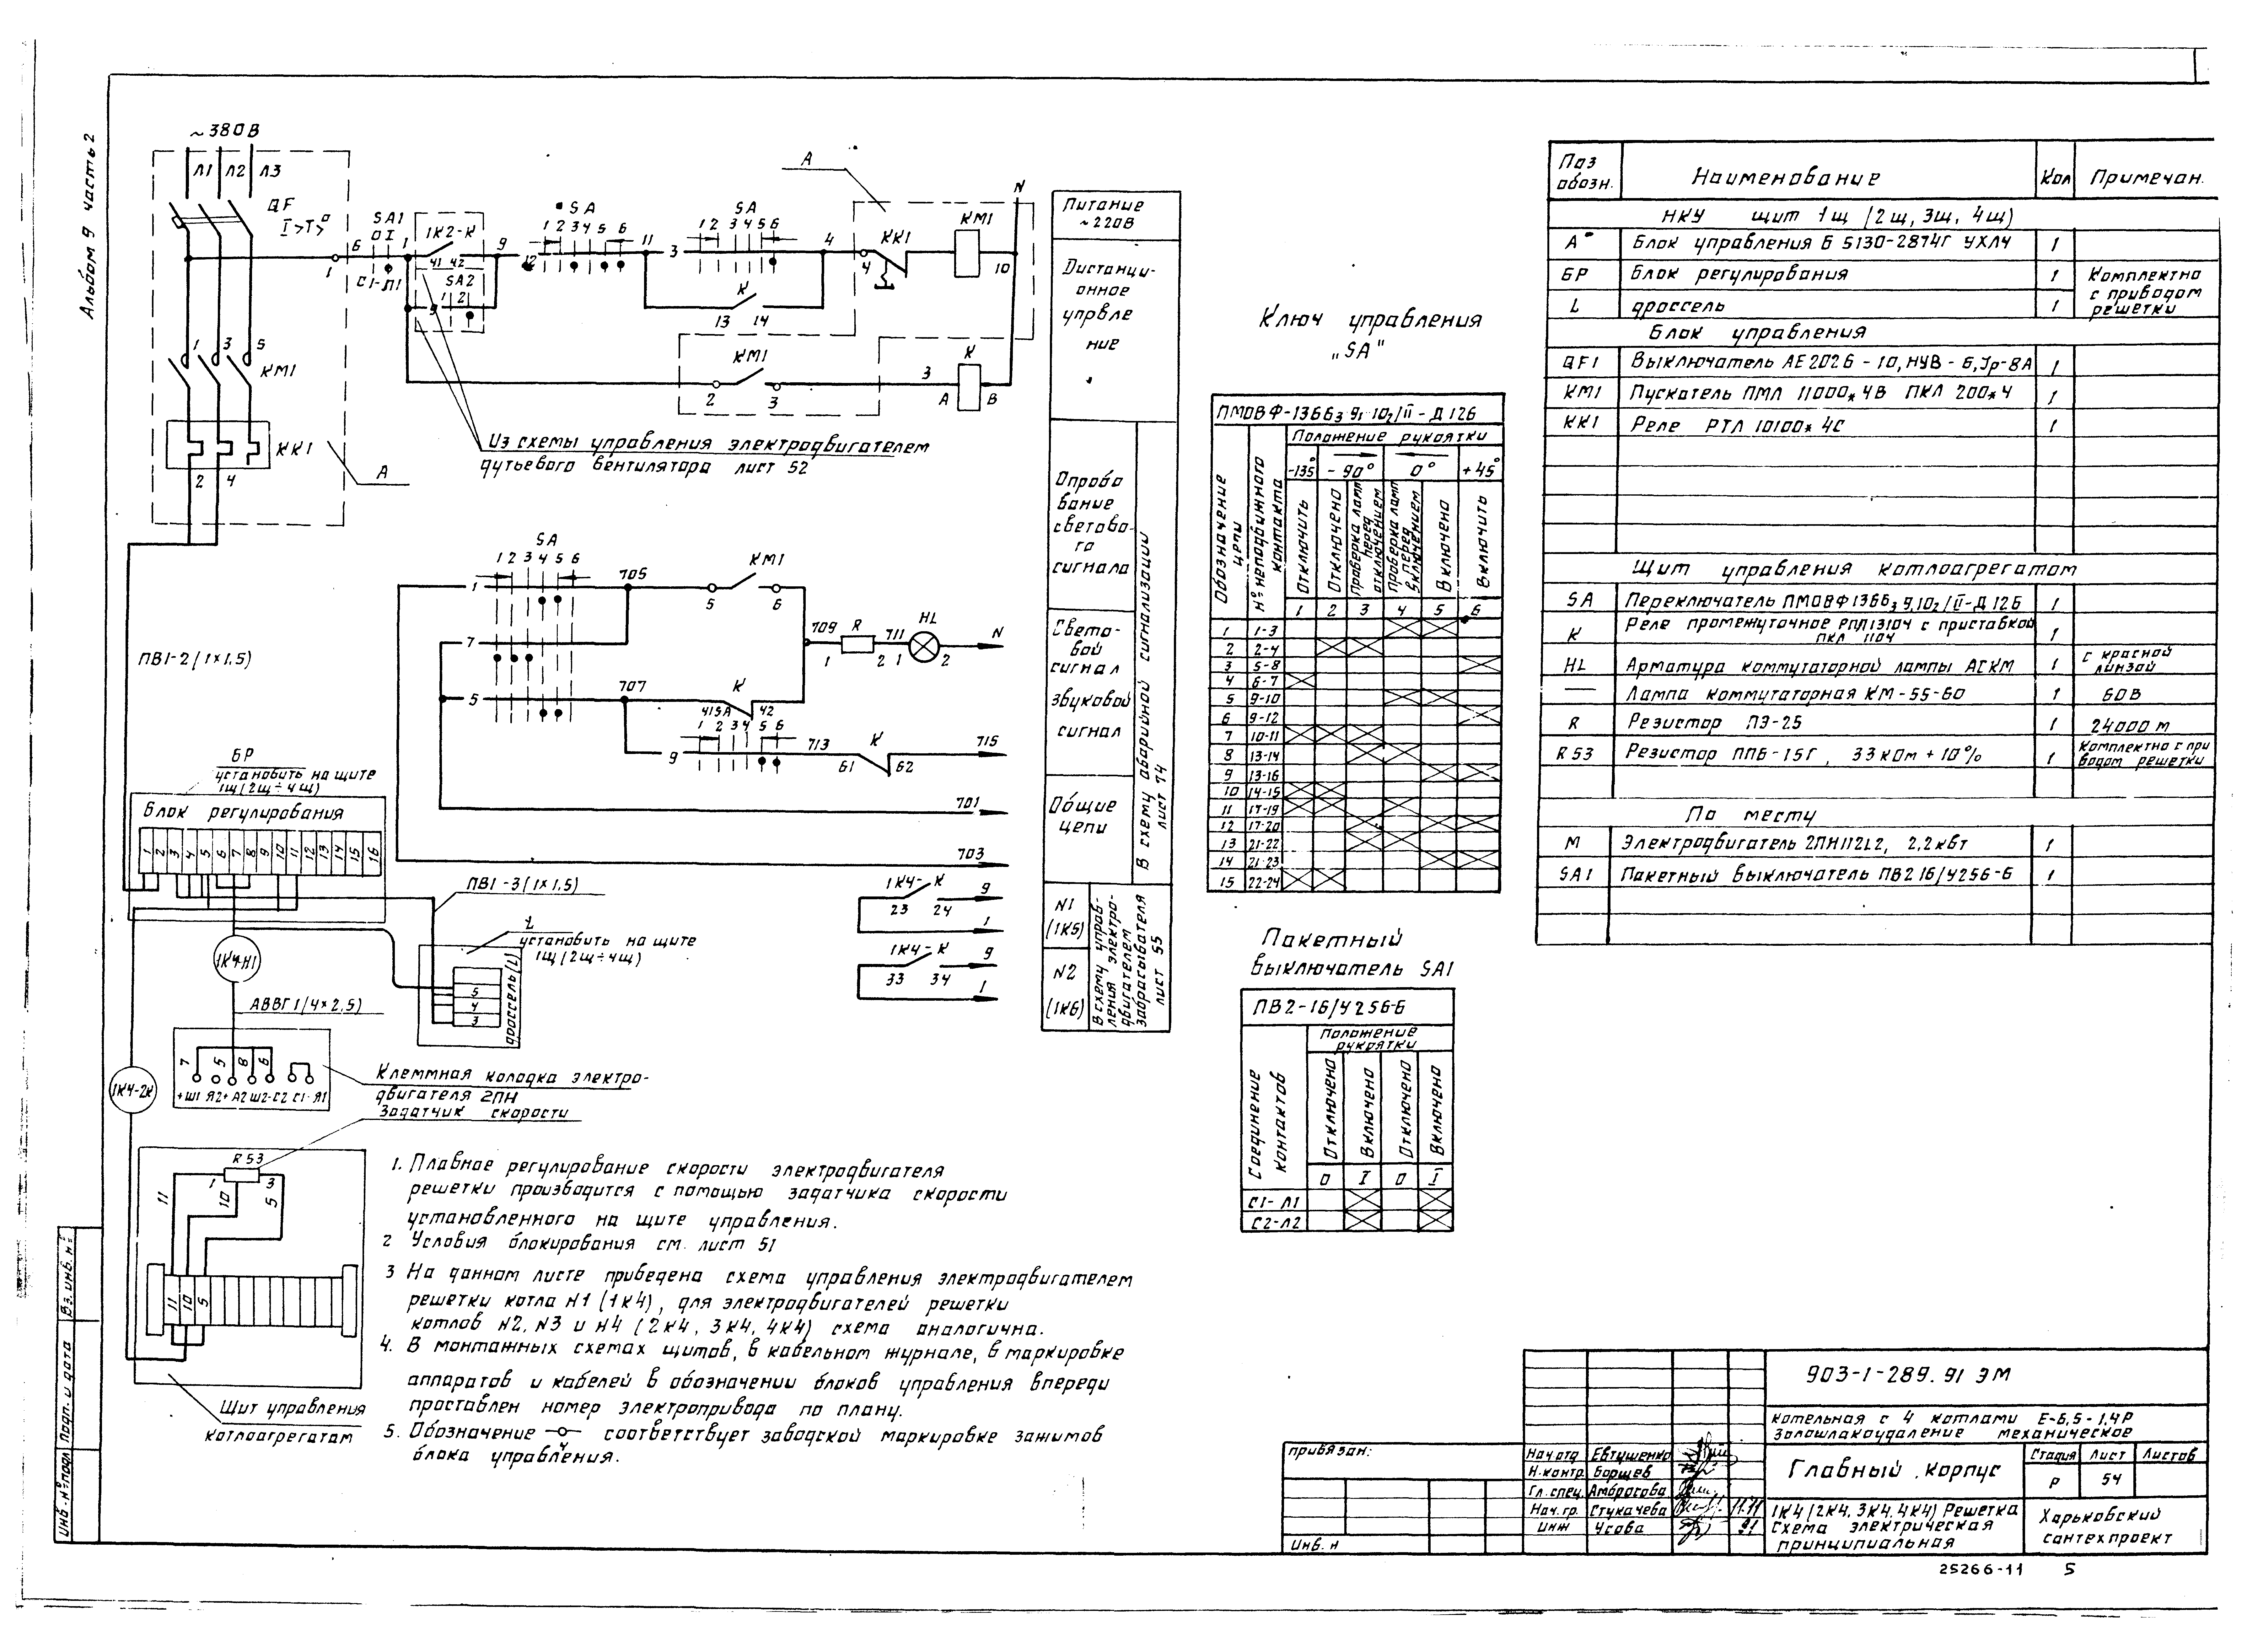 Альбом 9 часть 2
~380В
Л1 Л2 Л3
QF
I>T>°
1 3 5
КМ1
КК1
2 4
А
6 SA1
0 I
1
С1-Л1
1
1К2-К
41 42
SA2
1 2
9
9
SA
1 2 3 4 5 6
12
11
3
SA
1 2 3 4 5 6
4
К
13 14
А
4
КК1
КМ1
10
N
КМ1
2 3
3
К
А В
Из схемы управления электродвигателем
дутьевого вентилятора лист 52
Питание
~220В
Дистанци-
онное
упрвле
ние
Опробо
вание
светово-
го
сигнала
Свето-
вой
сигнал
звуковой
сигнал
Общие
цепи
В схему аварийной сигнализации
лист 74
N1
(1К5)
N2
(1К6)
В схему управ-
ления электро-
двигателем
забрасывателя
лист 55
SA
1 2 3 4 5 6
1
705
КМ1
5 6
7
709
R
1 2
711
HL
1 2
N
5
707
К
41 42
SA
1 2 3 4 5 6
9
713
К
61 62
715
701
703
1К4-К
23 24
9
1
1К4-К
33 34
9
1
ПВ1-2(1×1,5)
БР
установить на щите
1Щ(2Щ÷4Щ)
Блок регулирования
1 2 3 4 5 6 7 8 9 10 11 12 13 14 15 16
ПВ1-3(1×1,5)
L
установить на щите
1Щ(2Щ÷4Щ)
дроссель(L)
5
4
3
1К4-Н1
АВВГ1(4×2,5)
7 5 8 6
+Ш1 Я2+ А2 Ш2-С2 С1-Я1
Клеммная колодка электро-
двигателя 2ПН
Задатчик скорости
1К4-2К
R53
1 3
11 10 5
11 10 5
Щит управления
котлоагрегатам
1. Плавное регулирование скорости электродвигателя
решетки производится с помощью задатчика скорости
установленного на щите управления.
2 Условия блокирования см. лист 51
3 На данном листе приведена схема управления электродвигателем
решетки котла N1 (1К4), для электродвигателей решетки
котлов N2, N3 и N4 (2К4, 3К4, 4К4) схема аналогична.
4. В монтажных схемах щитов, в кабельном журнале, в маркировке
аппаратов и кабелей в обозначении блоков управления впереди
проставлен номер электропривода по плану.
5. Обозначение 4 соответствует заводской маркировке зажимов
блока управления.
Ключ управления
"SA"
ПМОВФ-1366₃9₁10₂/II-Д126
Обозначение цепи
N° неподвижного контакта
Положение рукоятки
-135° -90° 0° +45°
Отключить
Отключено
Проверка ламп перед отключением
Проверка ламп перед включением
Включено
Включить
1 2 3 4 5 6
1 1-3
2 2-4
3 5-8
4 6-7
5 9-10
6 9-12
7 10-11
8 13-14
9 13-16
10 14-15
11 17-19
12 17-20
13 21-22
14 21-23
15 22-24
Пакетный
выключатель SA1
ПВ2-16/У256-Б
Соединение контактов
Положение
рукоятки
Отключено
Включено
Отключено
Включено
0 I 0 I
С1-Л1
С2-Л2
Поз обозн. Наименование Кол Примечан.
НКУ щит 1щ (2щ, 3щ, 4щ)
А Блок управления Б 5130-2874Г УХЛ4 1
БР Блок регулирования 1 Комплектно
с приводом
решетки
L дроссель 1
Блок управления
QF1 Выключатель АЕ2026-10, НУВ-Б, Jр-8А 1
КМ1 Пускатель ПМЛ 11000*4В ПКЛ 200*4 1
КК1 Реле РТЛ 10100*4С 1
Щит управления котлоагрегатом
SA Переключатель ПМОВФ1366₃9,10₂/II-Д126 1
К Реле промежуточное РПЛ13104 с приставкой
ПКЛ 1104 1
HL Арматура коммутаторной лампы АСКМ 1 с красной
линзой
— Лампа коммутаторная КМ-55-60 1 60В
R Резистор ПЭ-25 1 24000м
R53 Резистор ППБ-15Г, 33кОм+10% 1 Комплектно с при
водом решетки
По месту
М Электродвигатель 2ПН112L2, 2,2кВт 1
SA1 Пакетный выключатель ПВ2 16/У256-Б 1
903-1-289.91 ЭМ
Котельная с 4 котлами Е-6,5-1,4Р
Золошлакоудаление механическое
Главный корпус
Стадия Лист Листов
Р 54
1К4(2К4, 3К4, 4К4) Решетка
Схема электрическая
принципиальная
Харьковский
сантехпроект
Нач отд Евтушенко
Н.контр Борщев
Гл.спец. Амбросова
Нач. гр. Стукачева 11.91
Инж Усова 91
привязан:
Инв. н
Инв.N°подл Подп. и дата Вз. инв. N°
25266-11 5